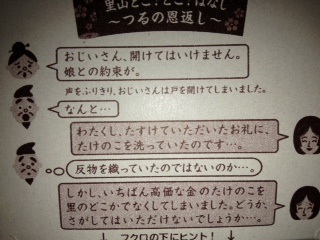 里山どこ?どこ?はなし
~つるの恩返し~
おじいさん、開けてはいけません。
娘との約束が。
声をふりきり、おじいさんは戸を開けてしまいました。
なんと…
わたくし、たすけていただいたお礼に、
たけのこを洗っていたのです…。
反物を織っていたのではないのか…。
しかし、いちばん高価な金のたけのこを
里のどこかでなくしてしまいました。どうか、
さがしてはいただけないでしょうか…。
↓ フクロの下にヒント! ↓